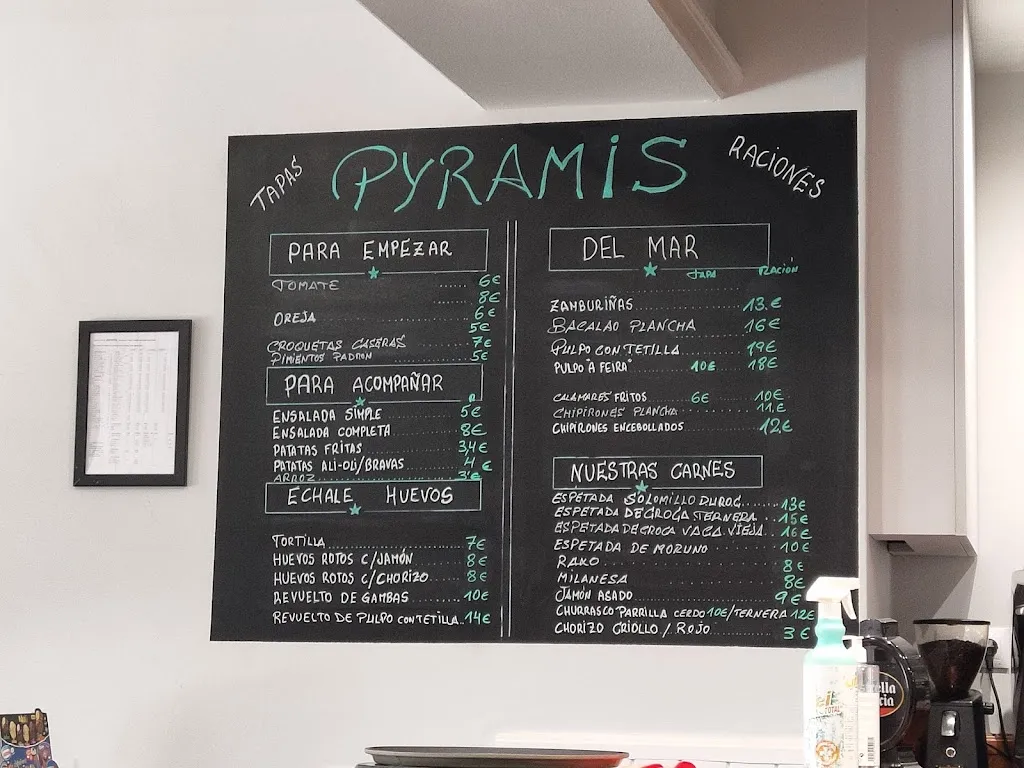 TAPAS
PYRAMIS
RACIONES
PARA EMPEZAR
TOMATE ...... 6€
...... 8€
OREJA 6€
5€
CROQUETAS CASERAS 7€
PIMIENTOS PADRON 5€
PARA ACOMPAÑAR
ENSALADA SIMPLE 5€
ENSALADA COMPLETA 8€
PATATAS FRITAS 3,4€
PATATAS ALI-OLI/BRAVAS 4€
ARROZ 3€
ÉCHALE HUEVOS
TORTILLA 7€
HUEVOS ROTOS C/JAMÓN 8€
HUEVOS ROTOS C/CHORIZO 8€
REVUELTO DE GAMBAS 10€
REVUELTO DE PULPO CON TETILLA 14€
DEL MAR
TAPA RACIÓN
ZAMBURIÑAS 13€
BACALAO PLANCHA 16€
PULPO CON TETILLA 19€
PULPO A FEIRA 10€ 18€
CALAMARES FRITOS 6€ 10€
CHIPIRONES PLANCHA 11€
CHIPIRONES ENCEBOLLADOS 12€
NUESTRAS CARNES
ESPETADA SOLOMILLO DUROC 13€
ESPETADA DE CROCA TERNERA 15€
ESPETADA DE CROCA VACA VIEJA 16€
ESPETADA DE MORUNO 10€
RAXO 8€
MILANESA 8€
JAMÓN ASADO 9€
CHURRASCO PARRILLA CERDO 10€/TERNERA 12€
CHORIZO CRIOLLO / ROJO 3€